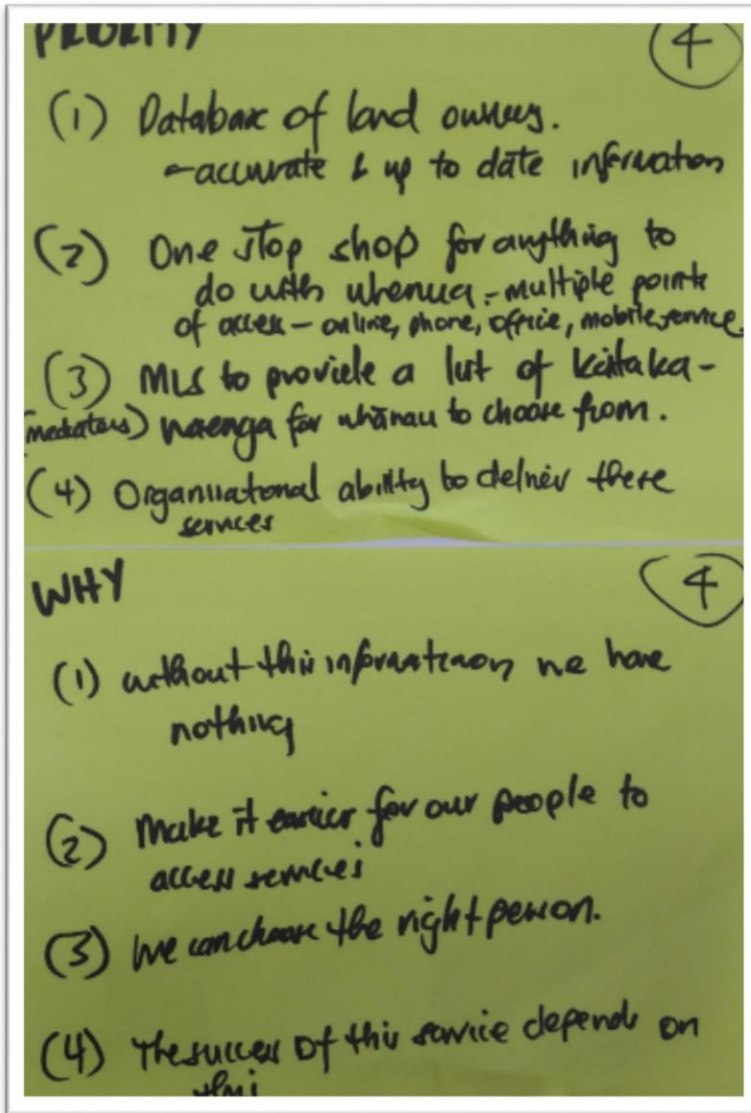 PRIORITY
4
(1) Database of land owners.
-accurate & up to date information
(2) One stop shop for anything to
do with whenua - multiple points
of access - online, phone, office, mobile service.
(3) MLS to provide a list of kaitaka-
(mediators) waenga for whānau to choose from.
(4) Organisational ability to deliver these
services
WHY
4
(1) without this information we have
nothing
(2) Make it easier for our people to
access services
(3) We can choose the right person.
(4) The success of this service depends on
this